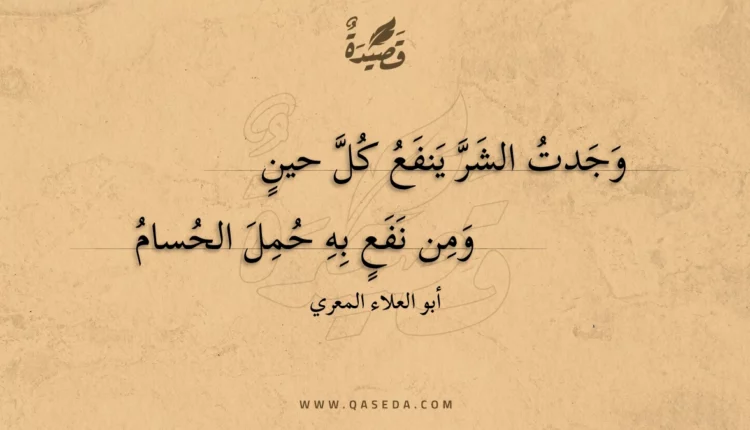 قَصِيدَةٌ
وَجَدتُ الشَرَّ يَنفَعُ كُلَّ حينٍ
وَمِن نَفَعٍ بِهِ حُمِلَ الحُسامُ
أبو العلاء المعري
WWW.QASEDA.COM